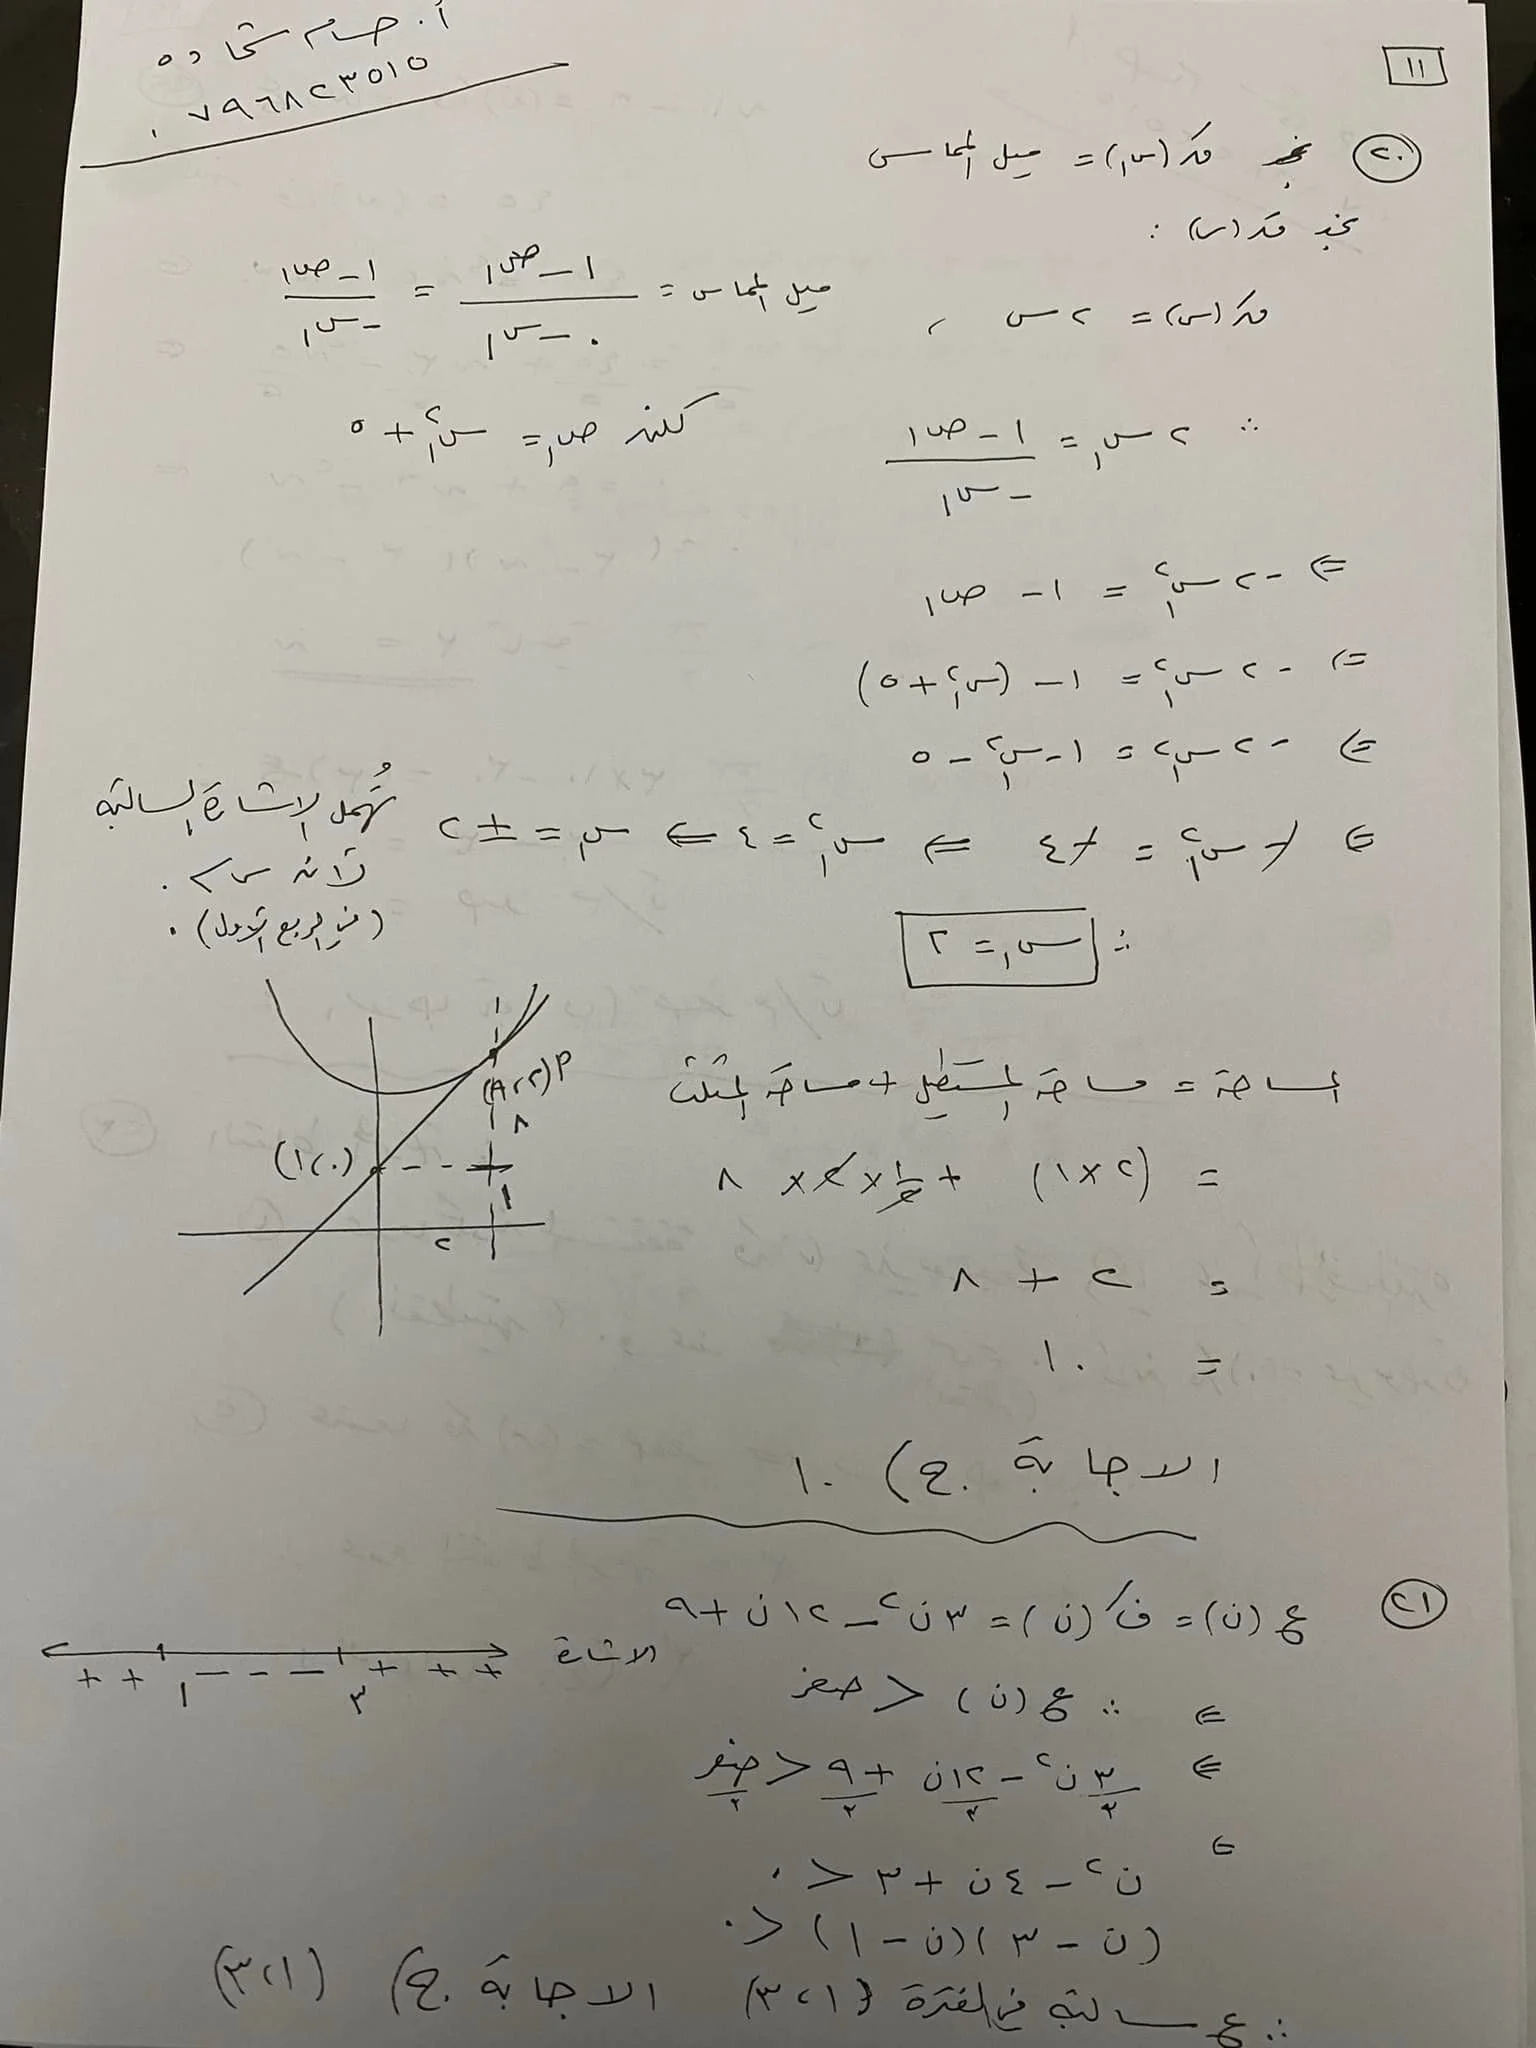 أ. حسام شحاده
٠٧٩٦٨٢٣٥١٥
١١
٢٠ نجد قَ(س١) = ميل المماس
نجد قَ(س) :
قَ(س) = ٢س ، ميل المماس = ١ - ص١ / ٠ - س١ = ١ - ص١ / - س١
∴ ٢س١ = ١ - ص١ / - س١ لكن ص١ = س١² + ٥
⇐ -٢س١² = ١ - ص١
⇐ -٢س١² = ١ - (س١² + ٥)
⇐ -٢س١² = ١ - س١² - ٥
⇐ -س١² = -٤ ⇐ س١² = ٤ ⇐ س١ = ±٢ تُهمل الاشارة السالبة
لأن س > ٠
(في الربع الأول) .
∴ س١ = ٢
المساحة = مساحة المستطيل + مساحة المثلث
= (٢×١) + ١/٢ × ٢ × ٨
= ٢ + ٨
= ١٠
أ(٢،٩)
٨
(٠،١)
١
٢
الاجابة ج) ١٠
٢١ ع(ن) = فَ(ن) = ٣ن² - ١٢ن + ٩
الاشارة + + ١ - - - ٣ + + +
⇐ ∴ ع(ن) < صفر
⇐ ٣ن²/٣ - ١٢ن/٣ + ٩/٣ < صفر/٣
⇐ ن² - ٤ن + ٣ < ٠
(ن - ٣)(ن - ١) < ٠
∴ ع سالبة في الفترة (١،٣) الاجابة ج) (١،٣)